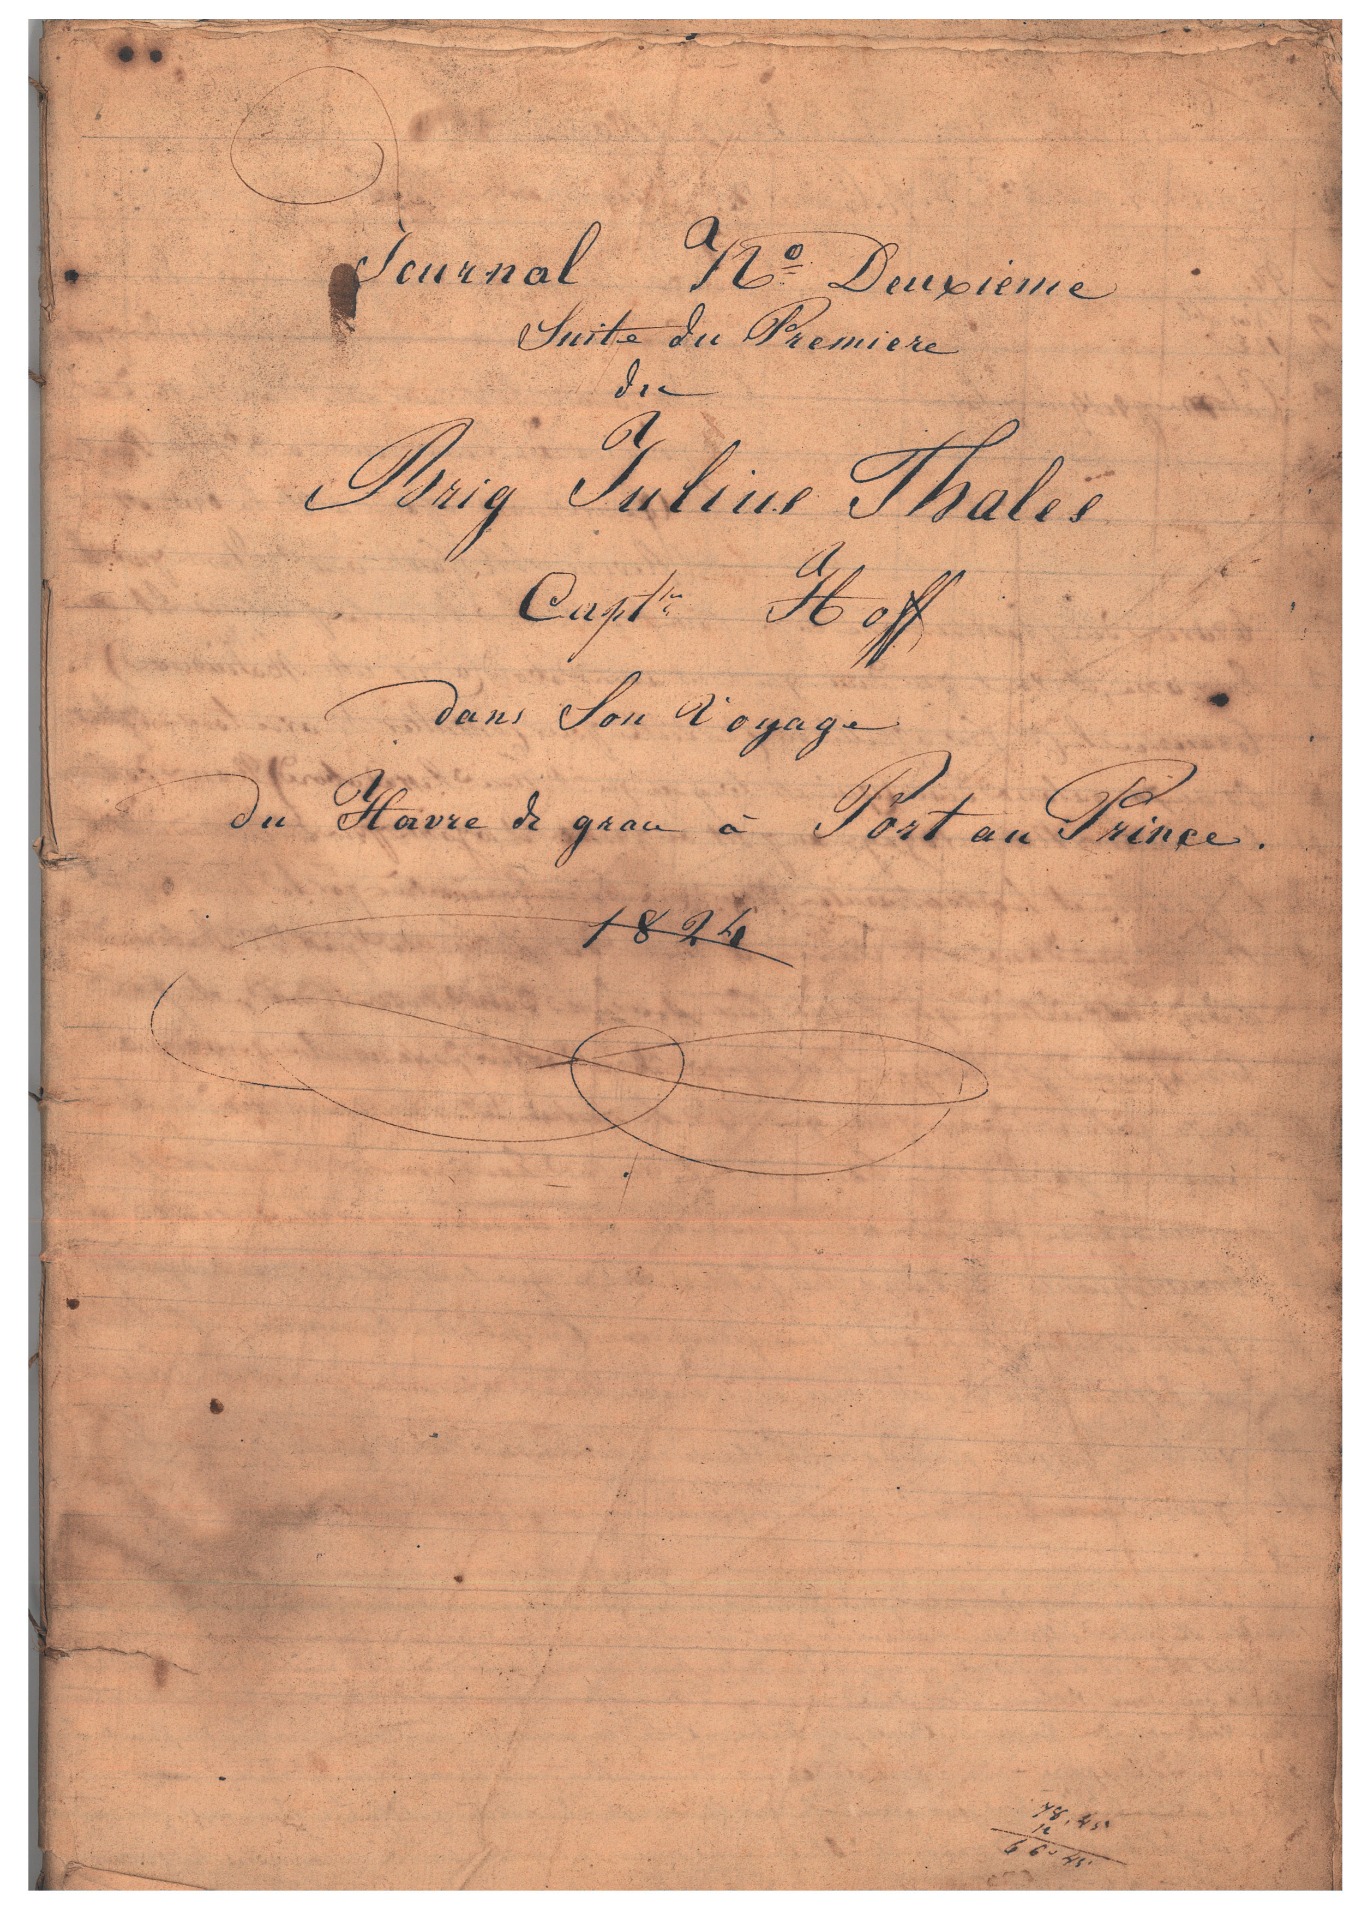 Journal Nº Deuxieme
Suite du Premiere
du
Brig Julius Thales
Capt.ne Hoff
dans Son Voyage
du Havre de grau à Port au Prince.
1824
78.45
12
66.45